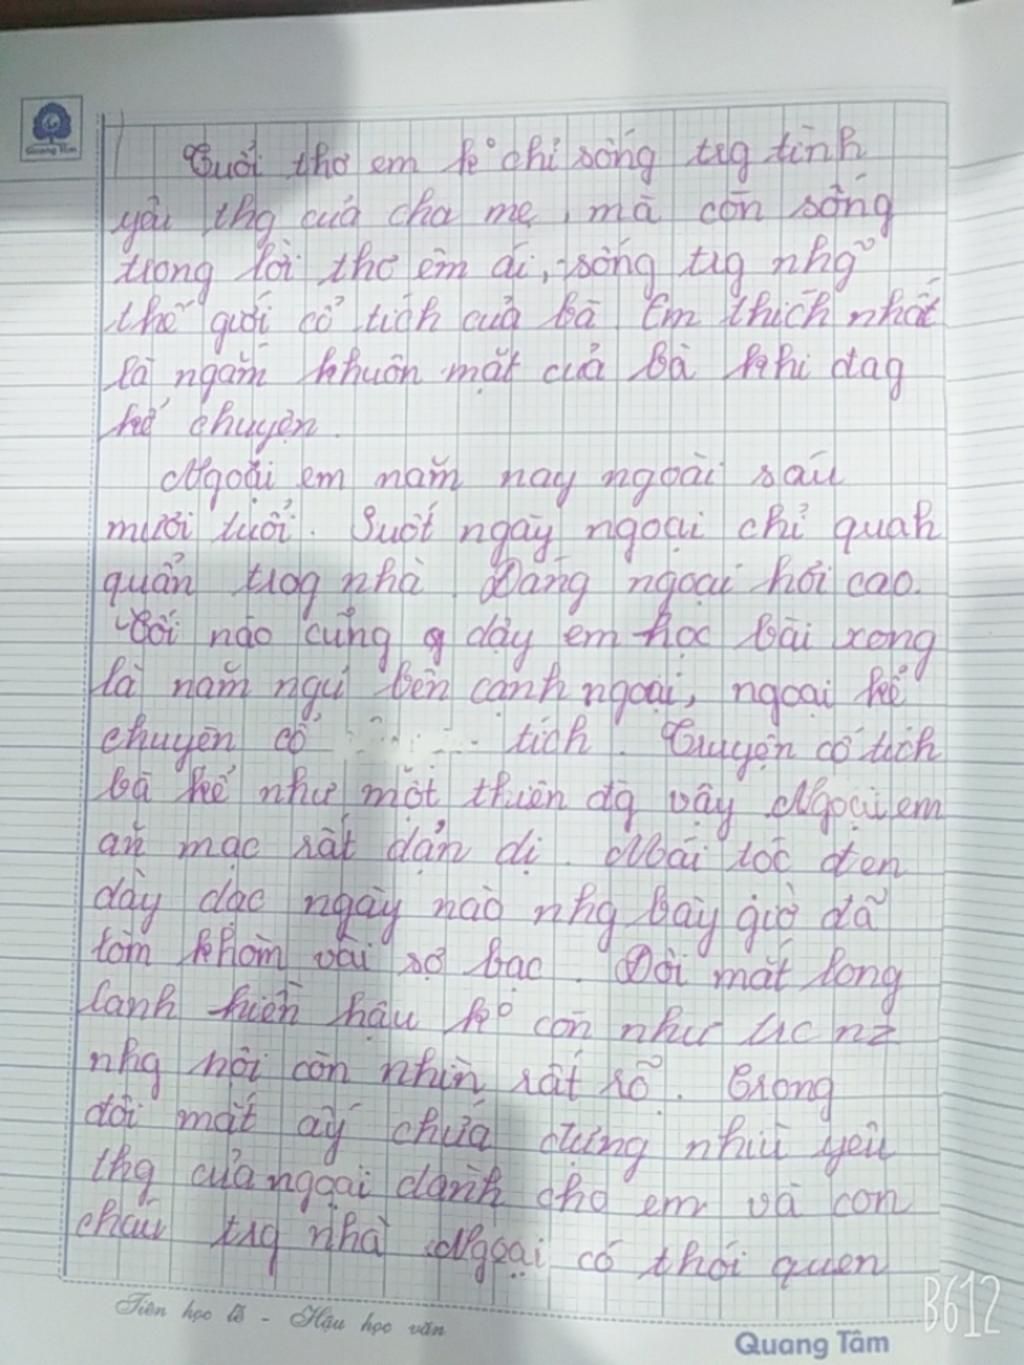 Quang Tâm
Tuổi thơ em k° chỉ sống trg tình
yêu thg của cha mẹ, mà còn sống
trong lời thơ êm ái, sống trg nhg
thế giới cổ tích của bà. Em thích nhất
là ngắm khuôn mặt của bà khi đag
kể chuyện.
Ngoại em năm nay ngoài sáu
mươi tuổi. Suốt ngày ngoại chỉ quanh
quẩn trog nhà. Dáng ngoại hơi cao.
Tối nào cũng dạy em học bài xong
là nằm ngủ bên cạnh ngoại, ngoại kể
chuyện cổ tích. Truyện cổ tích
bà kể như một thiên đg vậy. Ngoại em
ăn mặc rất dản dị. Mái tóc đen
dày dặc ngày nào nhg bây giờ đã
lòm khòm vài sợ bạc. Đôi mắt long
lanh hiền hậu k° còn như
nhg nội còn nhìn rất rõ. Trong
đôi mắt ấy chứa đựng nhiù yêu
thg của ngoại dành cho em và con
cháu trg nhà. Ngoại có thói quen
Tiên học lễ - Hậu học văn
Quang Tâm
B612